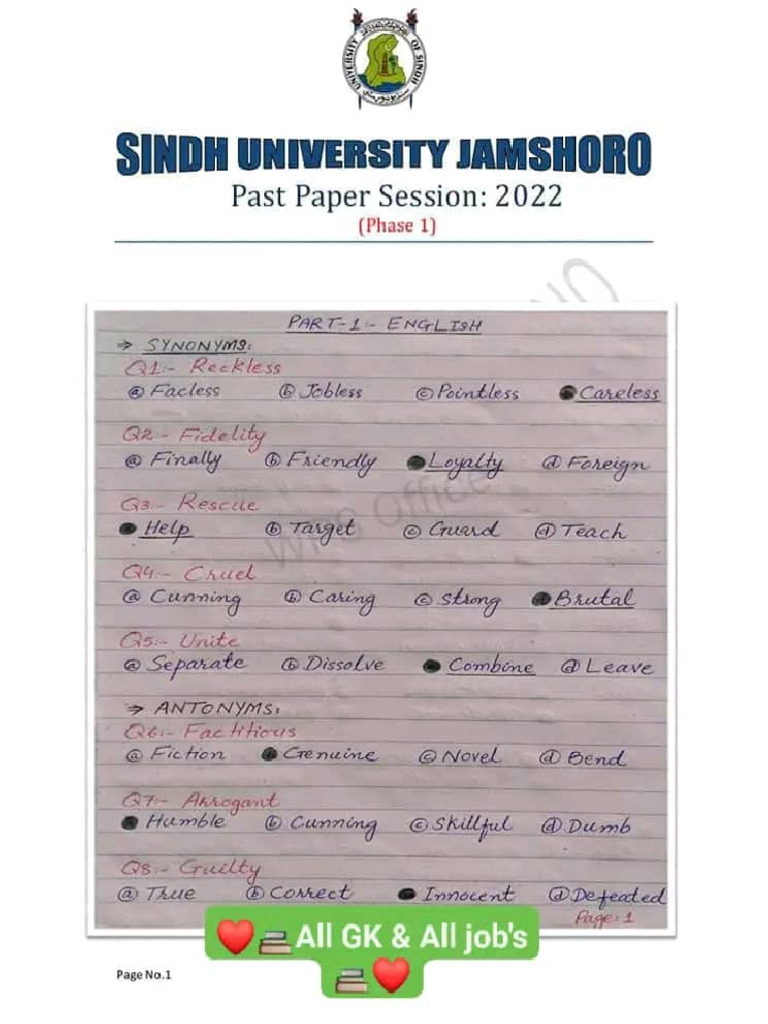 UNIVERSITY OF SINDH
SINDH UNIVERSITY JAMSHORO
Past Paper Session: 2022
(Phase 1)
PART-1:- ENGLISH
→ SYNONYMS:
Q1:- Reckless
ⓐ Facless ⓑ Jobless ⓒ Pointless ● Careless
Q2:- Fidelity
ⓐ Finally ⓑ Friendly ● Loyalty ⓓ Foreign
Q3:- Rescue
● Help ⓑ Target ⓒ Guard ⓓ Teach
Q4:- Cruel
ⓐ Cunning ⓑ Caring ⓒ Strong ● Brutal
Q5:- Unite
ⓐ Separate ⓑ Dissolve ● Combine ⓓ Leave
→ ANTONYMS:
Q6:- Factitious
ⓐ Fiction ● Genuine ⓒ Novel ⓓ Bend
Q7:- Arrogant
● Humble ⓑ Cunning ⓒ Skillful ⓓ Dumb
Q8:- Guilty
ⓐ True ⓑ Correct ● Innocent ⓓ Defeated
Page: 1
❤️📚All GK & All job's
📚❤️
Page No.1
Office